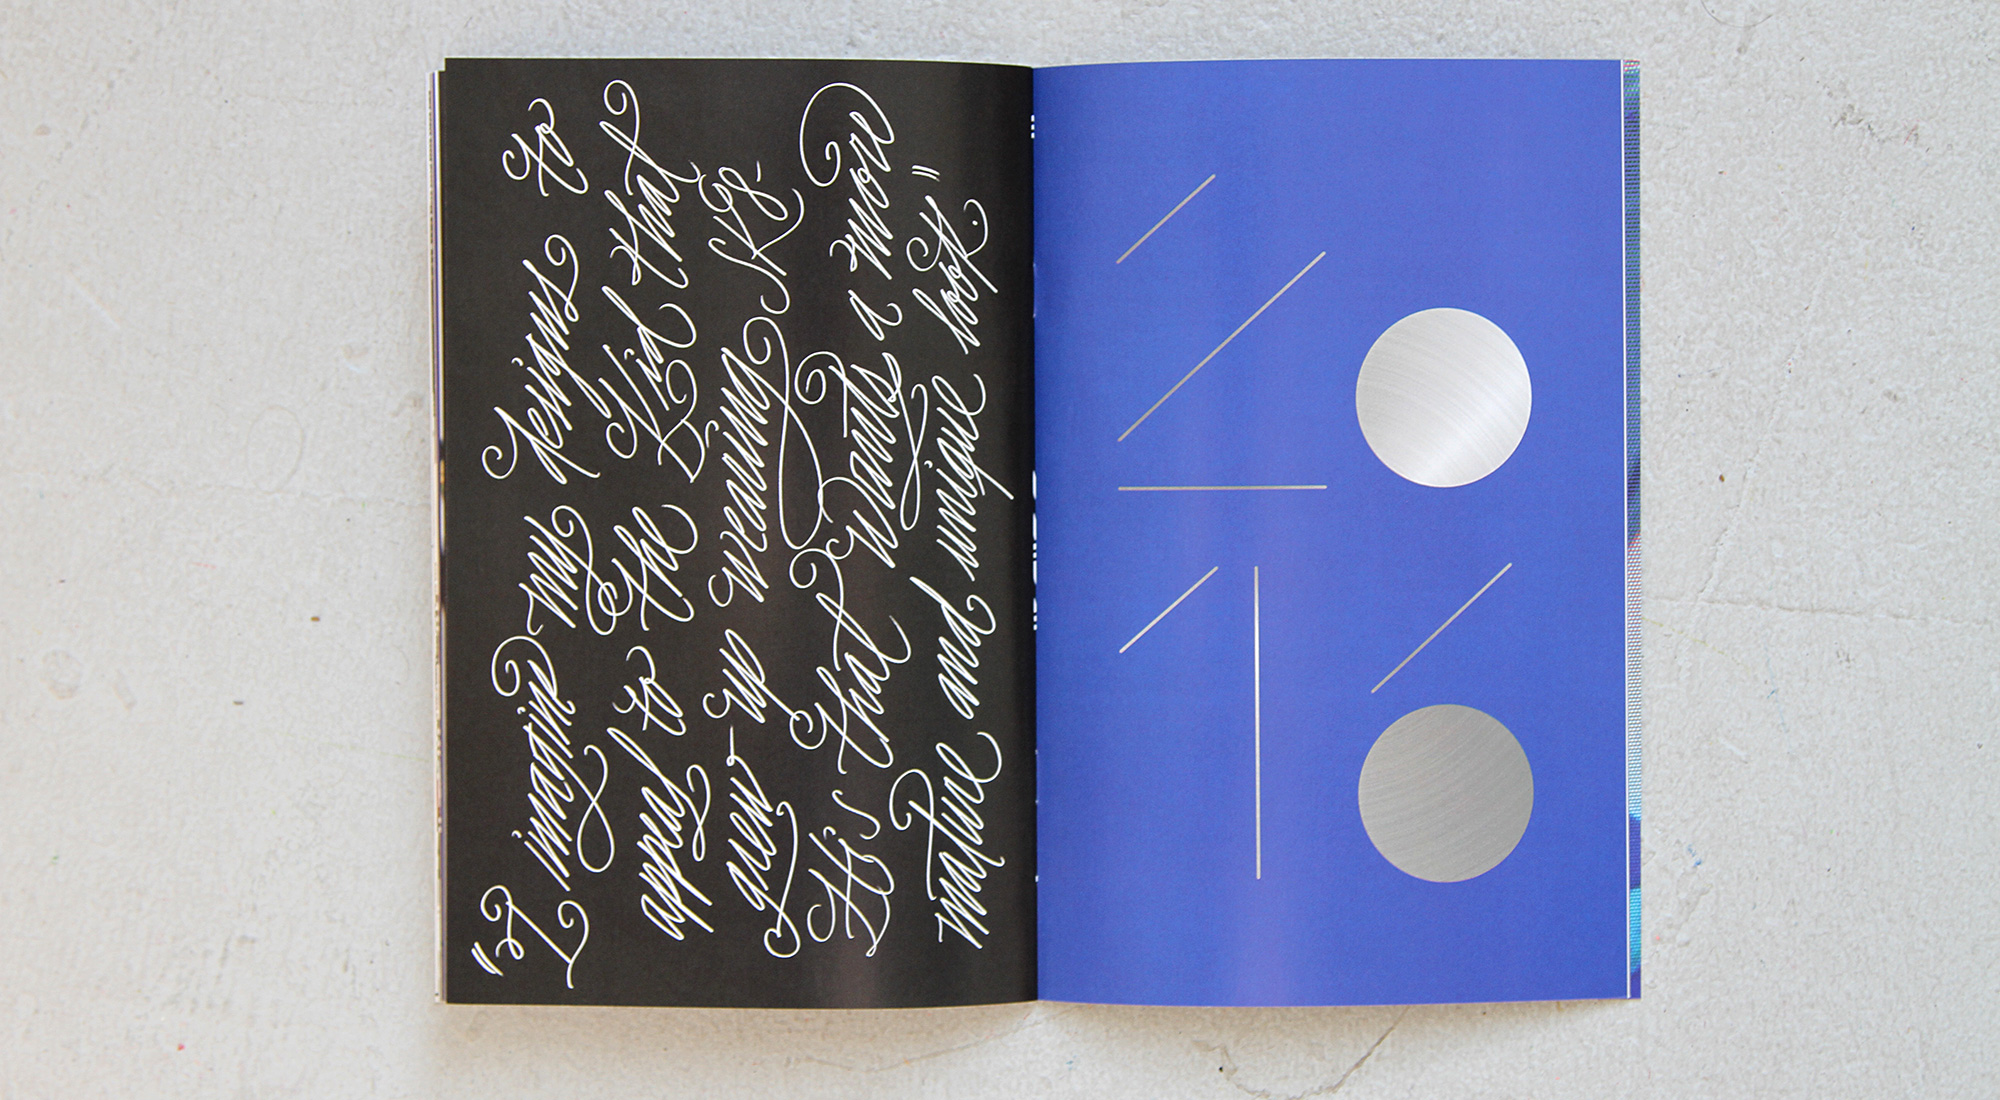 "I imagine my designs to
appeal to the Kid that
grew-up wearing SK8-
His that wants a more
mature and unique look."